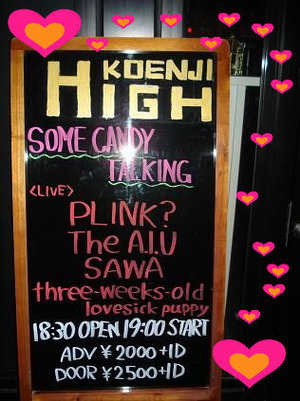 KOENJI
HIGH
SOME CANDY
TALKING
<LIVE>
PLINK?
The A.I.U
SAWA
three-weeks-old
lovesick puppy
18:30 OPEN 19:00 START
ADV ¥2000+1D
DOOR ¥2500+1D